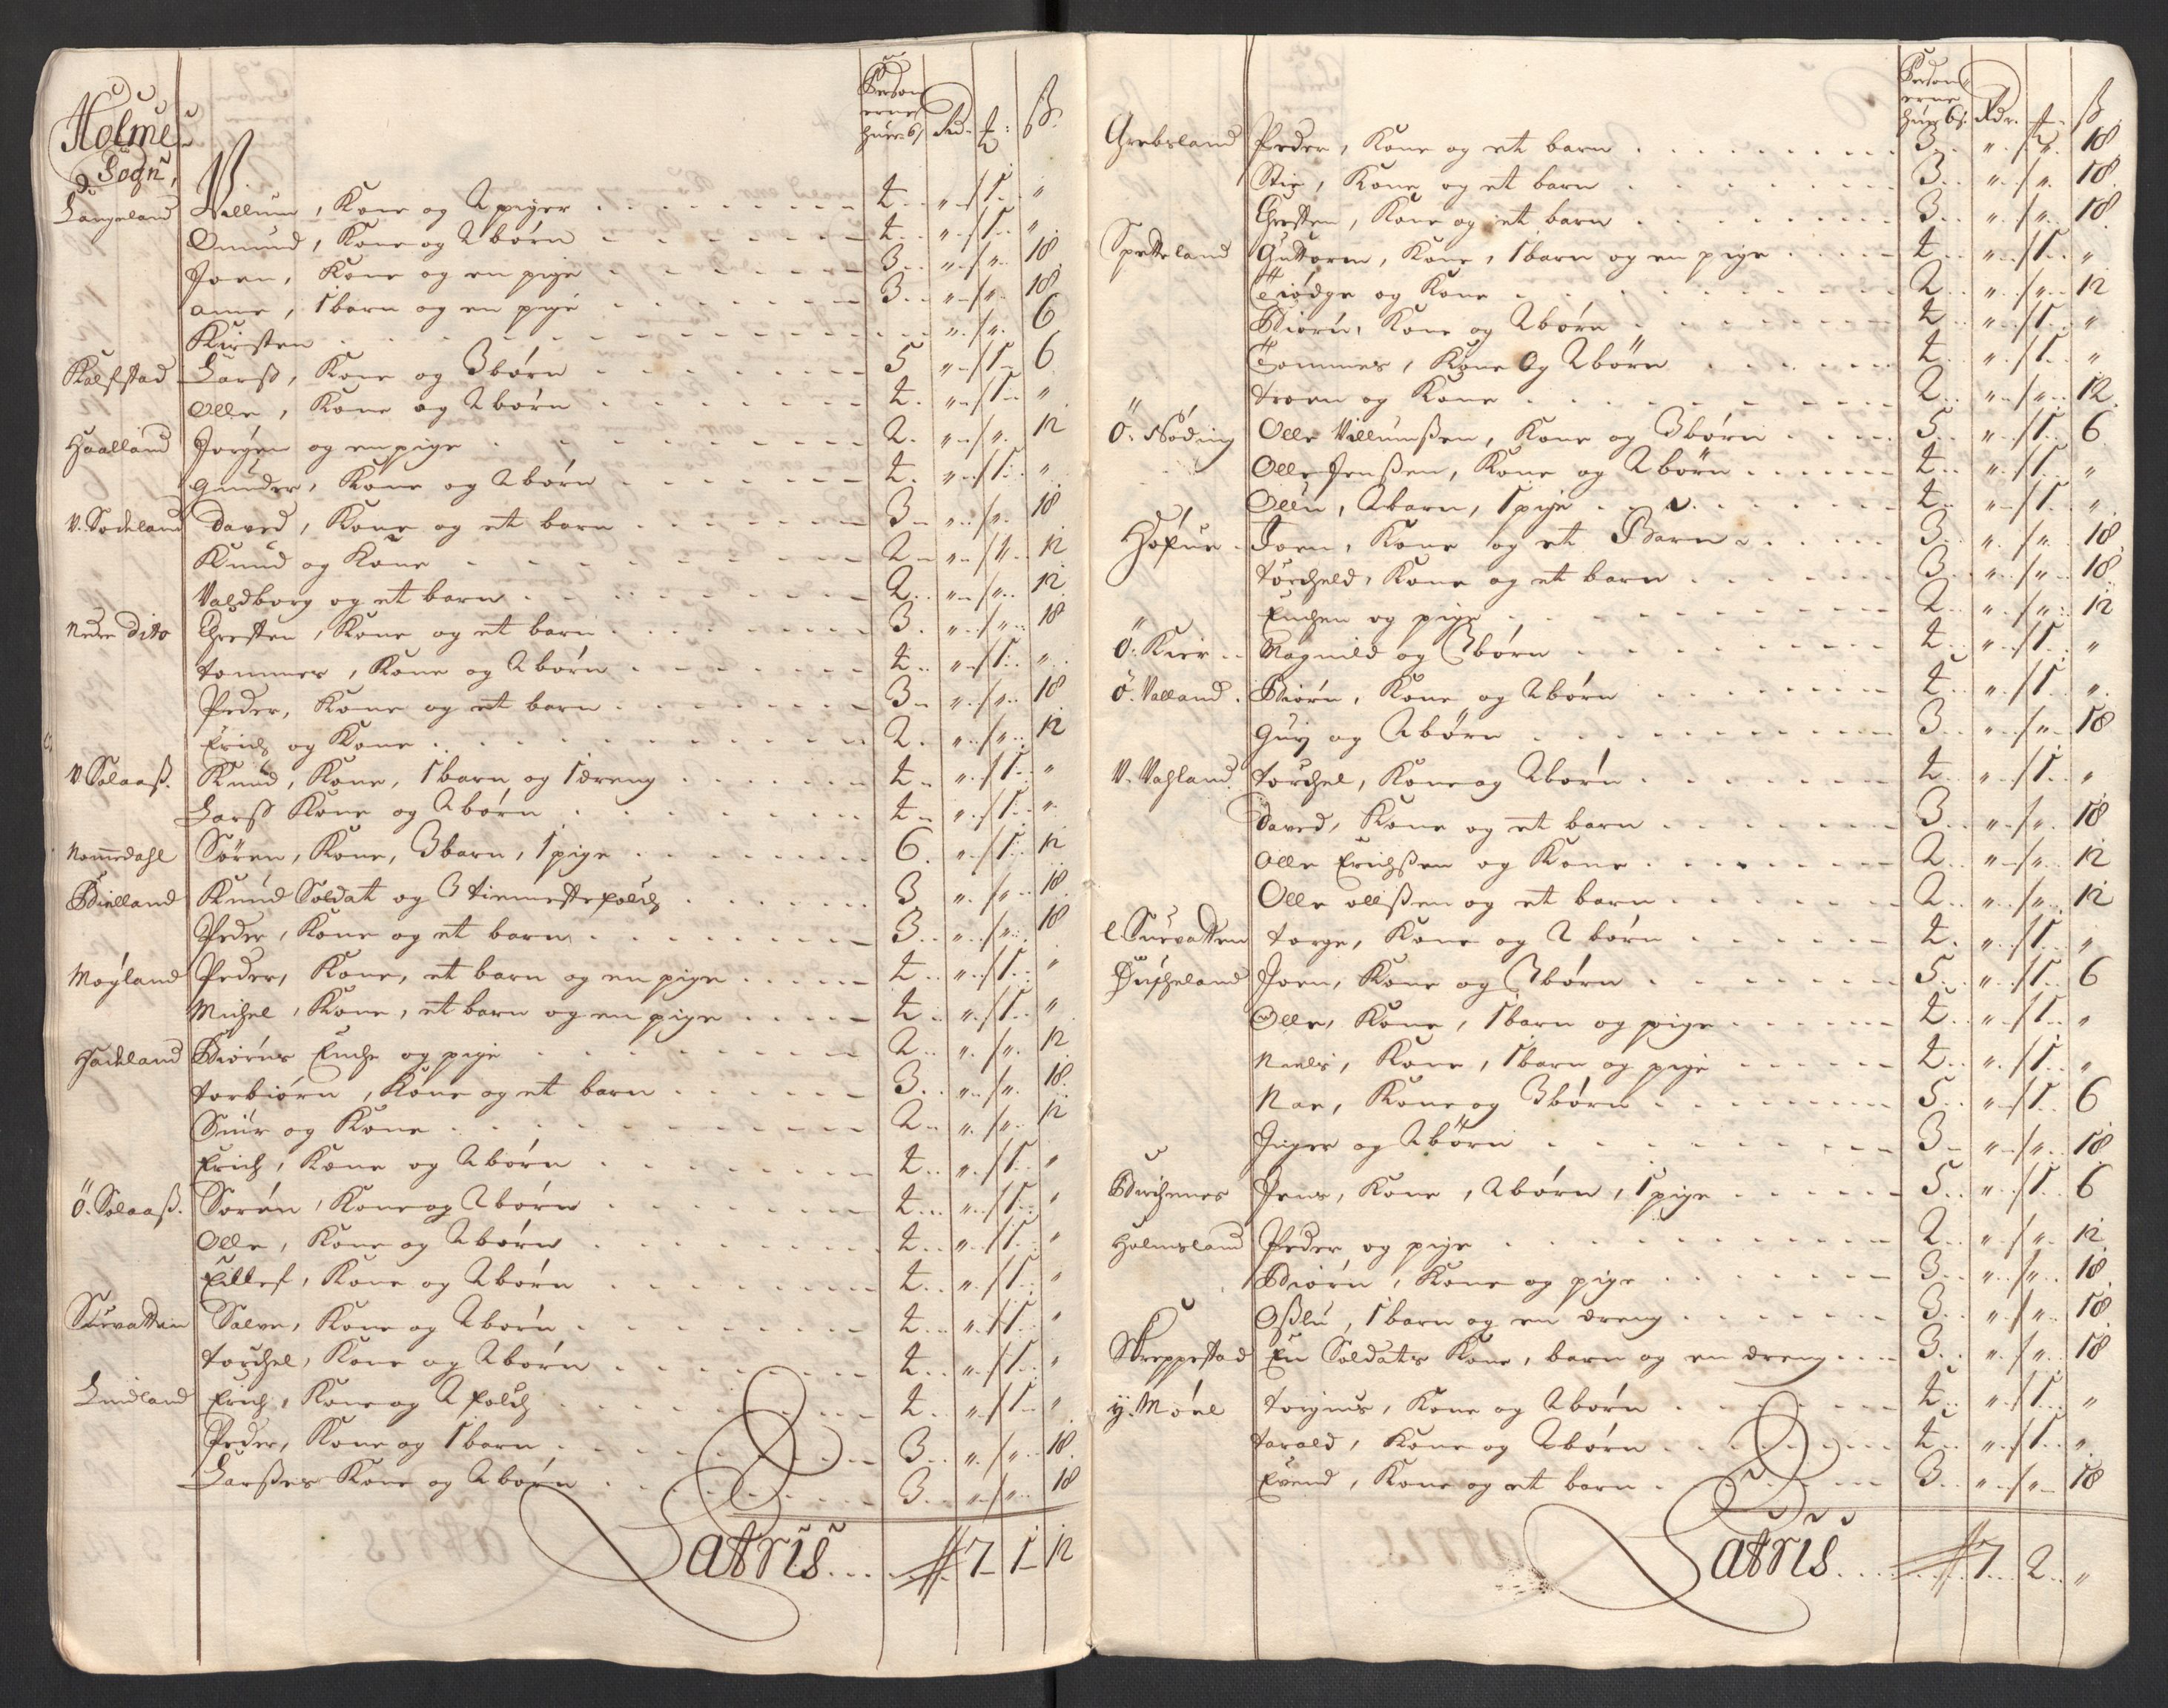 Holme
Sogn,
Personernes
Rd. ß
Langeland Villum, Kone og 2 piger 4 " 1 "
Omund, Kone og 2 børn 4 " 1 "
Joen, Kone og en pige 3 " " 18
Anne, 1 barn og en pige 3 " " 18
Kirsten " " 6
Kalfstad Larß, Kone og 3 børn 5 " 1 6
Olle, Kone og 2 børn 4 " 1 "
Haalland Jørgen og en pige 2 " " 12
Gunder, Kone og 2 børn 4 " 1 "
V. Sodeland David, Kone og et barn 3 " " 18
Knud og Kone 2 " " 12
Valdborg og et barn 2 " " 12
Nedre Dito Chresten, Kone og et barn 3 " " 18
Tommes, Kone og 2 børn 4 " 1 "
Peder, Kone og et barn 3 " " 18
Erich og Kone 2 " " 12
V. Solaaß. Knud, Kone, 1 barn og 1 dreng 4 " 1 "
Larß Kone og 2 børn 4 " 1 "
Nommedahl Søren, Kone, 3 barn, 1 pige 6 " 1 12
Bielland Knud Soldat og 3 tienestefolch 3 " " 18
Peder, Kone og et barn 3 " " 18
Møyland Peder, Kone, et barn og en pige 4 " 1 "
Michel, Kone, et barn og en pige 4 " 1 "
Hachland Biørns Enche og pige 2 " " 12
Torbiørn, Kone og et barn 3 " " 18
Siur og Kone 2 " " 12
Erich, Kone og 2 børn 4 " 1 "
Ö. Solaaß. Søren, Kone og 2 børn 4 " 1 "
Olle, Kone og 2 børn 4 " 1 "
Ellef, Kone og 2 børn 4 " 1 "
Survatten Salve, Kone og 2 børn 4 " 1 "
Torchel, Kone og 2 børn 4 " 1 "
Lindland Erich, Kone og 2 folch 4 " 1 "
Peder, Kone og 1 barn 3 " " 18
Larßes Kone og 2 børn 3 " " 18
Latris 7 1 12
Personerne
Rdr. ß
Grebsland Peder, Kone og et barn 3 " " 18
Stie, Kone og et barn 3 " " 18
Chresten, Kone og et barn 3 " " 18
Spetteland Guttorm, Kone, 1 barn og en pige 4 " 1 "
Tiødge og Kone 2 " " 12
Biørn, Kone og 2 børn 4 " 1 "
Tommes, Kone og 2 børn 4 " 1 "
Troen og Kone 2 " " 12
Ö. Nöding Olle Villumßen, Kone og 3 børn 5 " 1 6
Olle Jenßen, Kone og 2 børn 4 " 1 "
Ollu, 2 barn, 1 pige 4 " 1 "
Joen, Kone og et Barn 3 " " 18
Torcheld, Kone og et barn 3 " " 18
Enchen og pige 2 " " 12
Ö. Kier Magnild og 3 børn 4 " 1 "
Ö. Valland Biørn, Kone og 2 børn 4 " 1 "
Guri og 2 børn 3 " " 18
V. Vahland Torchel, Kone og 2 børn 4 " 1 "
David, Kone og et barn 3 " " 18
Olle Erichßen og Kone 2 " " 12
Olle ollßen og et barn 2 " " 12
l. Survatten Torge, Kone og 2 børn 4 " 1 "
Joen, Kone og 3 børn 5 " 1 6
Olle, Kone, 1 barn og pige 4 " 1 "
Niels, Kone, 1 barn og pige 4 " 1 "
Kone og 3 børn 5 " 1 6
Inger og 2 børn 3 " " 18
Birchenes Jens, Kone, 2 børn, 1 pige 5 " 1 6
Holmsland Peder og pige 2 " " 12
Biørn, Kone og pige 3 " " 18
Oßlu, 1 barn og en dreng 3 " " 18
Skreppestad En Soldats Kone, barn og en dreng 3 " " 18
y. Møll Torjus, Kone og 2 børn 4 " 1 "
Tarald, Kone og 2 børn 4 " 1 "
Evend, Kone og et barn 3 " " 18
Latris 7 2 "